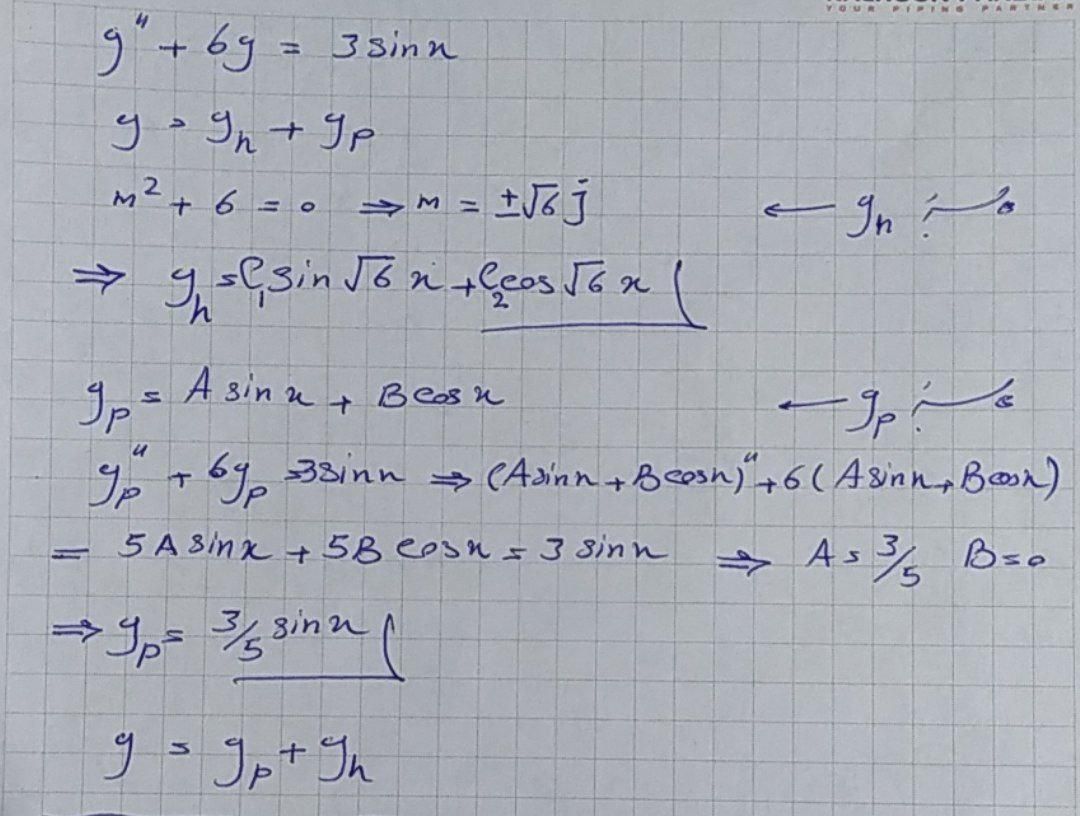 YOUR PIPING PARTNER
y" + 6y = 3 sin x
y = y_h + y_p
m² + 6 = 0 ⇒ m = ±√6 j ← y_h :
⇒ y_h = C₁ sin √6 x + C₂ cos √6 x
y_p = A sin x + B cos x ← y_p :
y_p" + 6y_p = 3 sin x ⇒ (A sin x + B cos x)" + 6(A sin x + B cos x)
= 5A sin x + 5B cos x = 3 sin x ⇒ A = 3/5 B = 0
⇒ y_p = 3/5 sin x
y = y_p + y_h